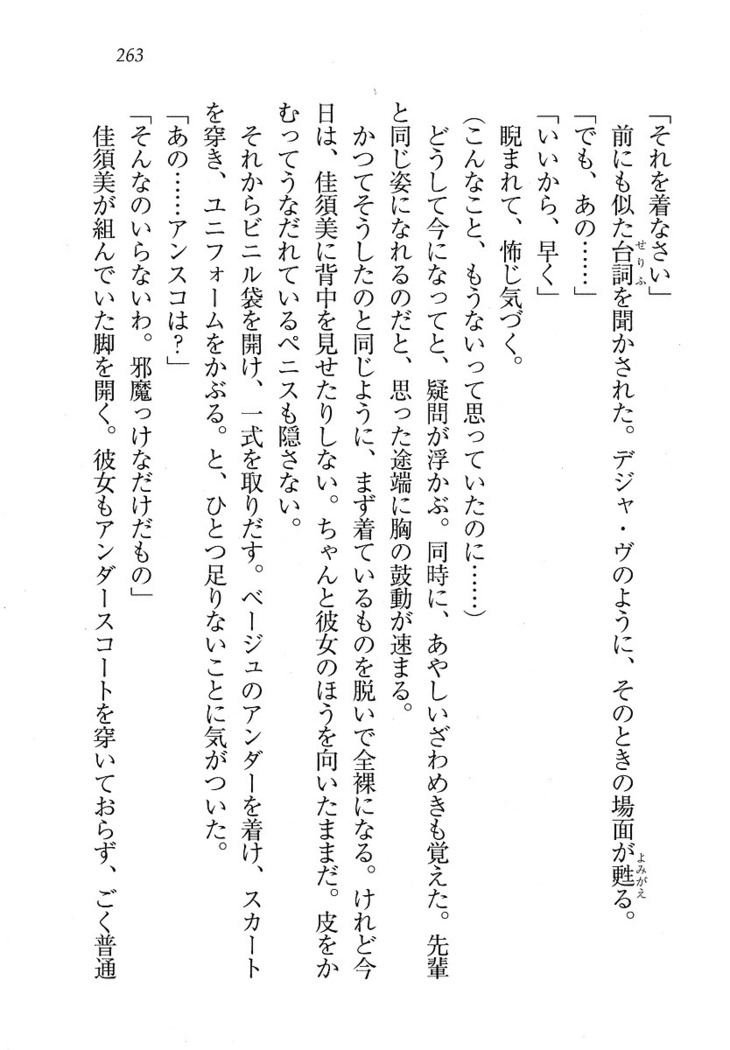 263
「それを着なさい」
前にも似た台詞を聞かされた。デジャ・ヴのように、そのときの場面が甦る。
「でも、あの……」
「いいから、早く」
睨まれて、怖じ気づく。
(こんなこと、もうないって思っていたのに……)
どうして今になってと、疑問が浮かぶ。同時に、あやしいざわめきも覚えた。先輩
と同じ姿になれるのだと、思った途端に胸の鼓動が速まる。
かつてそうしたのと同じように、まず着ているものを脱いで全裸になる。けれど今
日は、佳須美に背中を見せたりしない。ちゃんと彼女のほうを向いたままだ。皮をか
むってうなだれているペニスも隠さない。
それからビニル袋を開け、一式を取りだす。ベージュのアンダーを着け、スカート
を穿き、ユニフォームをかぶる。と、ひとつ足りないことに気がついた。
「あの……アンスコは?」
「そんなのいらないわ。邪魔っけなだけだもの」
佳須美が組んでいた脚を開く。彼女もアンダースコートを穿いておらず、ごく普通